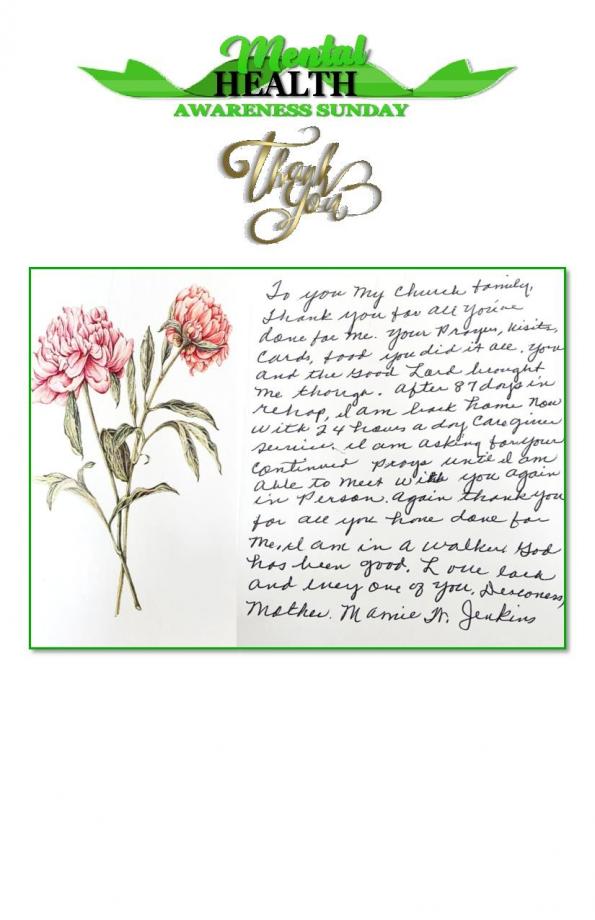 Mental
HEALTH
AWARENESS SUNDAY
Thank
You
To you My Church family,
Thank you for all You've
done for me. Your Prayer, Visits,
Cards, food you did it all. You
and the Good Lord brought
me though. After 87 days in
rehap, I am back home now
with 24 hours a day Caregiver
Service. I am asking for your
Continued Prays until I am
able to meet with you again
in Person. Again thank you
for all you have done for
Me. I am in a walker. God
has been good. Love each
and every one of you. Desconess,
Mother. Mamie W. Jenkins